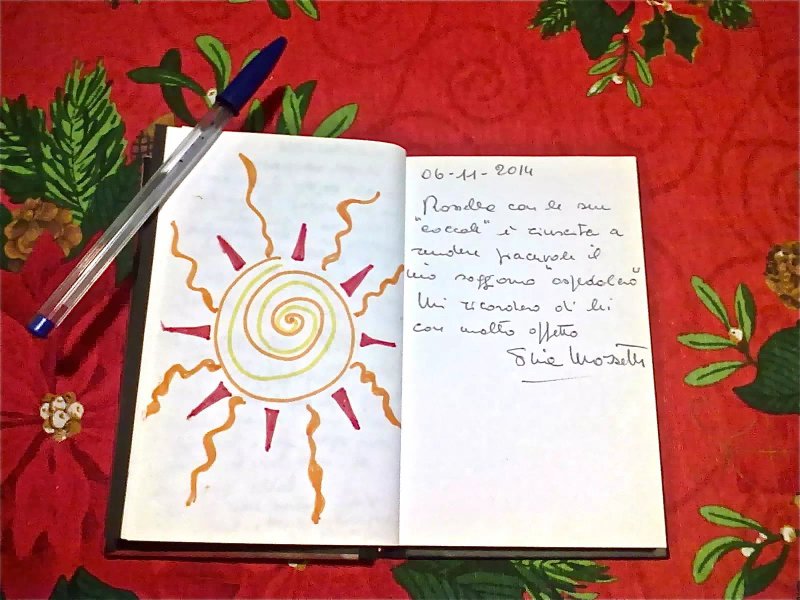 06-11-2014
Rosella con le sue
"coccole" è riuscita a
rendere piacevole il
mio soggiorno "ospedaliero"
Mi ricorderò di lei
con molto affetto
Silvia Mossetti